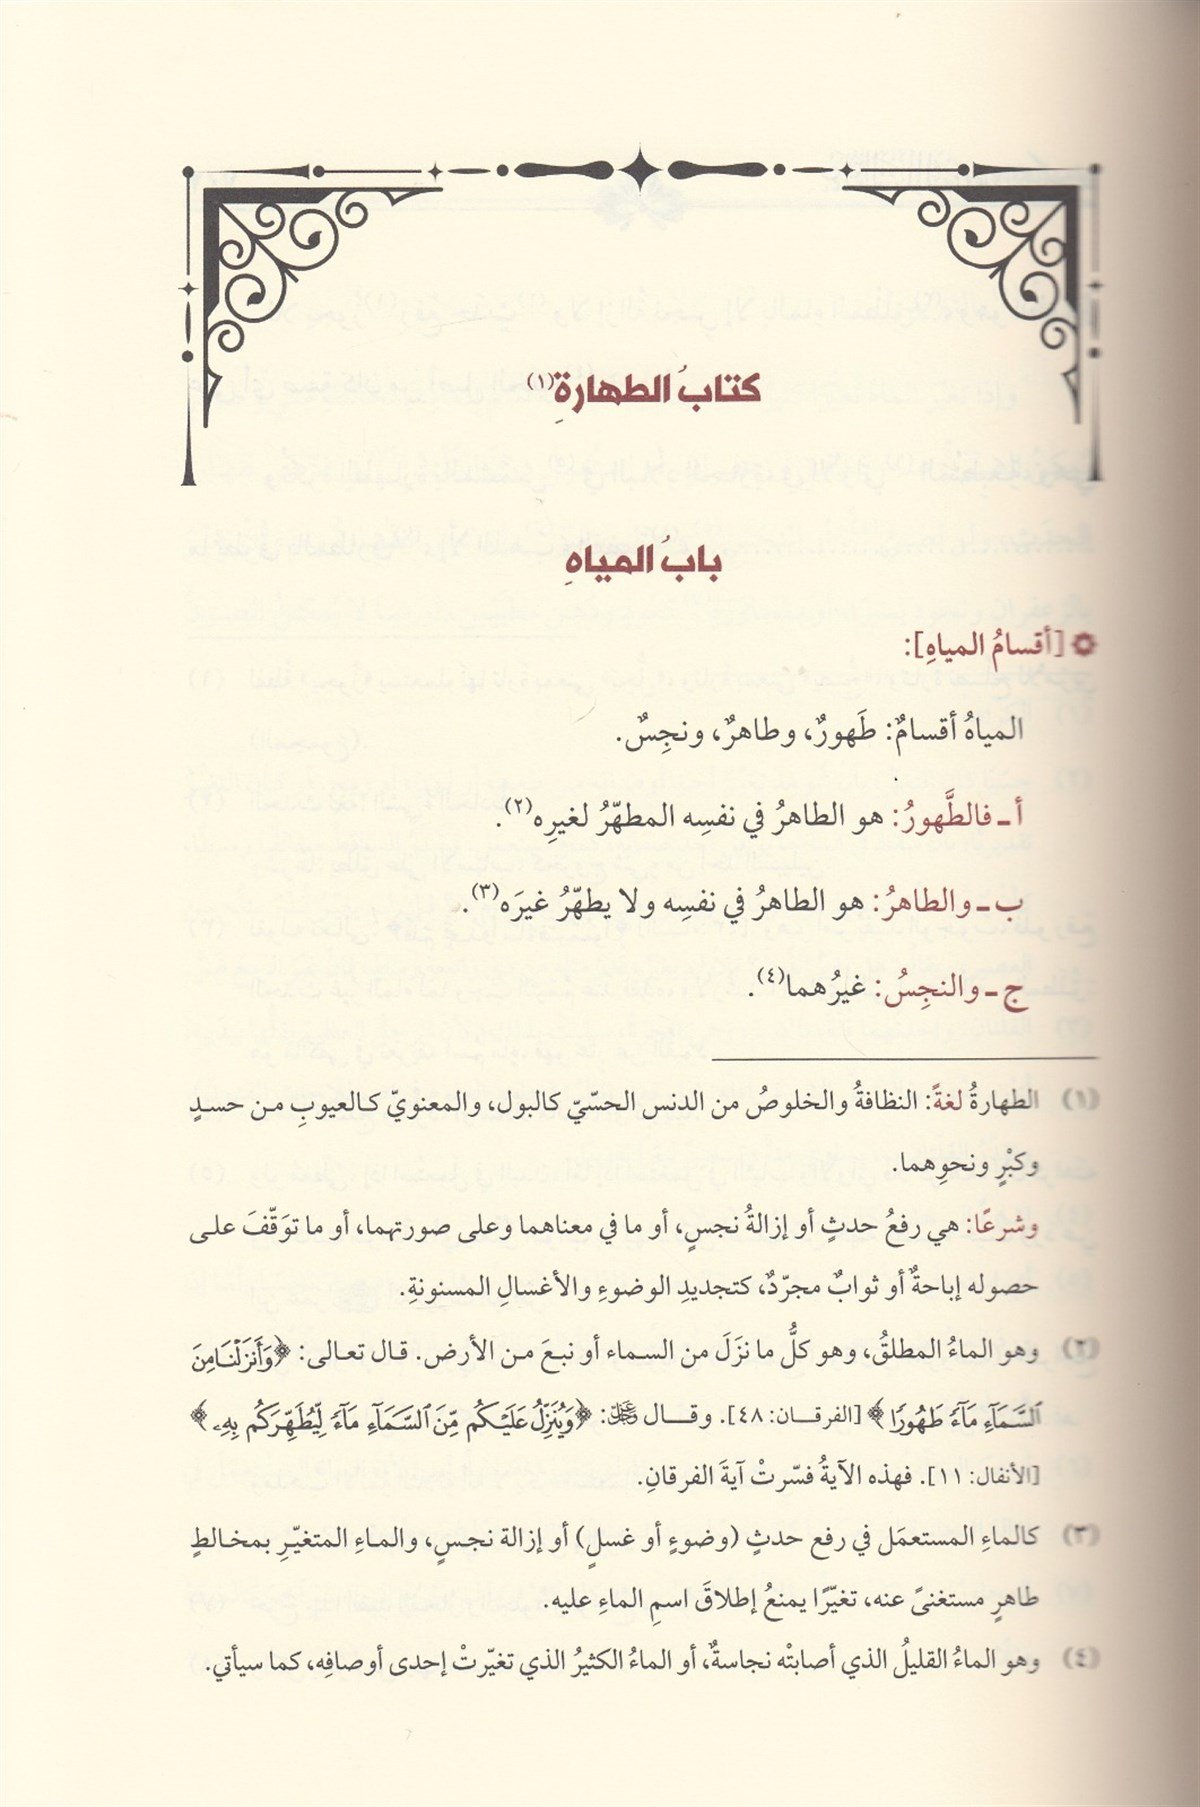 كتابُ الطهارةِ(١)
بابُ المياهِ
[أقسامُ المياهِ]:
المياهُ أقسامٌ: طَهورٌ، وطاهرٌ، ونجِسٌ.
أ ـ فالطَّهورُ: هو الطاهرُ في نفسِه المطهّرُ لغيرِه(٢).
ب ـ والطاهرُ: هو الطاهرُ في نفسِه ولا يطهّرُ غيرَه(٣).
ج ـ والنجِسُ: غيرُهما(٤).
(١) الطهارةُ لغةً: النظافةُ والخلوصُ من الدنس الحسّيّ كالبول، والمعنويّ كالعيوبِ من حسدٍ
وكبْرٍ ونحوِهما.
وشرعًا: هي رفعُ حدثٍ أو إزالةُ نجسٍ، أو ما في معناهما وعلى صورتهما، أو ما توَقّفَ على
حصوله إباحةٌ أو ثوابٌ مجرّدٌ، كتجديدِ الوضوءِ والأغسالِ المسنونةِ.
(٢) وهو الماءُ المطلقُ، وهو كلُّ ما نزَلَ من السماء أو نبعَ من الأرض. قال تعالى: ﴿وَأَنزَلْنَا مِنَ
ٱلسَّمَآءِ مَآءً طَهُورًا﴾ [الفرقان: ٤٨]. وقال ﷻ: ﴿وَيُنَزِّلُ عَلَيْكُم مِّنَ ٱلسَّمَآءِ مَآءً لِّيُطَهِّرَكُم بِهِۦ﴾
[الأنفال: ١١]. فهذه الآيةُ فسّرتْ آيةَ الفرقانِ.
(٣) كالماءِ المستعمَل في رفع حدثٍ (وضوءٍ أو غسلٍ) أو إزالة نجسٍ، والماءِ المتغيّرِ بمخالطٍ
طاهرٍ مستغنىً عنه، تغيّرًا يمنعُ إطلاقَ اسمِ الماءِ عليه.
(٤) وهو الماءُ القليلُ الذي أصابتْه نجاسةٌ، أو الماءُ الكثيرُ الذي تغيّرتْ إحدى أوصافِه، كما سيأتي.